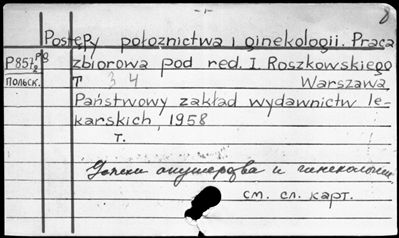 8
Postępy położnictwa i ginekologii. Praca
P857₂ P8 zbiorowa pod red. I. Roszkowskiego
польск. т 3 4 Warszawa,
Państwowy zakład wydawnictw le-
karskich, 1958
т.
акушерства и гинекологии.
см. сл. карт.